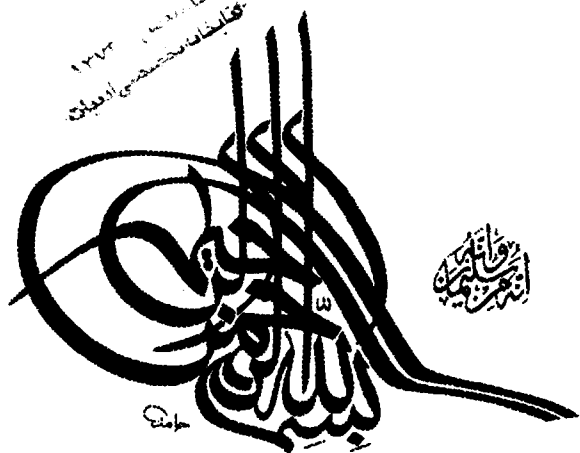 ۱۳۷۳
کتابخانه تخصصی ادبیات
بسم الله الرحمن الرحيم
انه من سليمن وانه
حامد